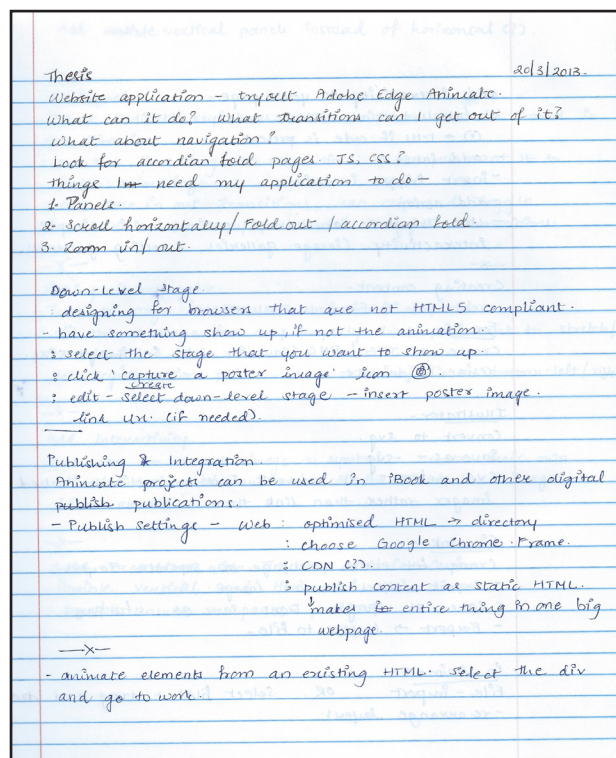 Thesis 20/3/2013.
Website application - tryout Adobe Edge Animate.
What can it do? What transitions can I get out of it?
What about navigation?
Look for accordian fold pages. JS, CSS?
Things I need my application to do -
1. Panels.
2. Scroll horizontally / Fold out / accordian fold.
3. Zoom in/out.
Down-level stage.
: designing for browsers that are not HTML5 compliant.
- have something show up, if not the animation.
: select the stage that you want to show up.
: click 'capture a poster image' icon
create
: edit - select down-level stage - insert poster image.
link url. (if needed).
Publishing & Integration.
Animate projects can be used in iBook and other digital
publish publications.
- Publish settings - Web : optimised HTML → directory
: choose Google Chrome Frame.
: CDN (?).
: publish content as static HTML.
makes entire thing in one big
webpage.
—x—
- animate elements from an existing HTML. Select the div
and go to work.